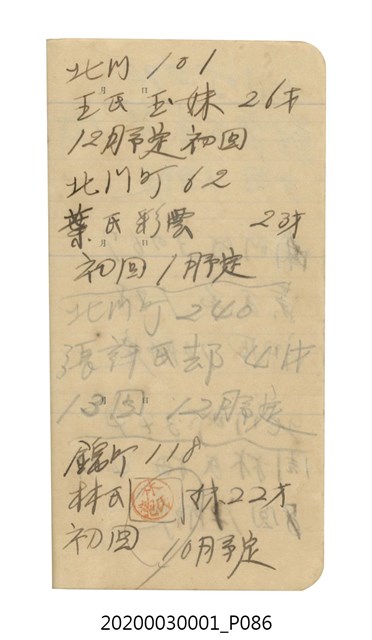 北川 101
王氏玉妹 26才
12月予定 初回
北川町 62
葉氏彩雲 23才
初回 1月予定
北川町 240
張許氏却 41才
13回 12月予定
錦町 118
林氏 妹 22才
初回 10月予定
20200030001_P086